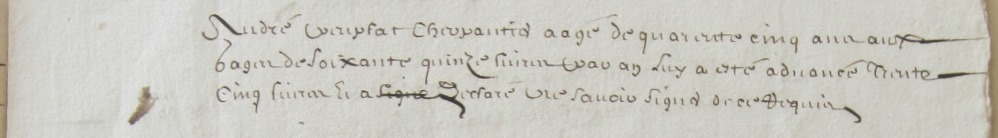 André Charpantier aagé de quarente cinq ans aux
gages de soixante quinze livres par an luy a esté advancé trente
cinq livres Et a signé declaré ne savoir signer de ce Requis